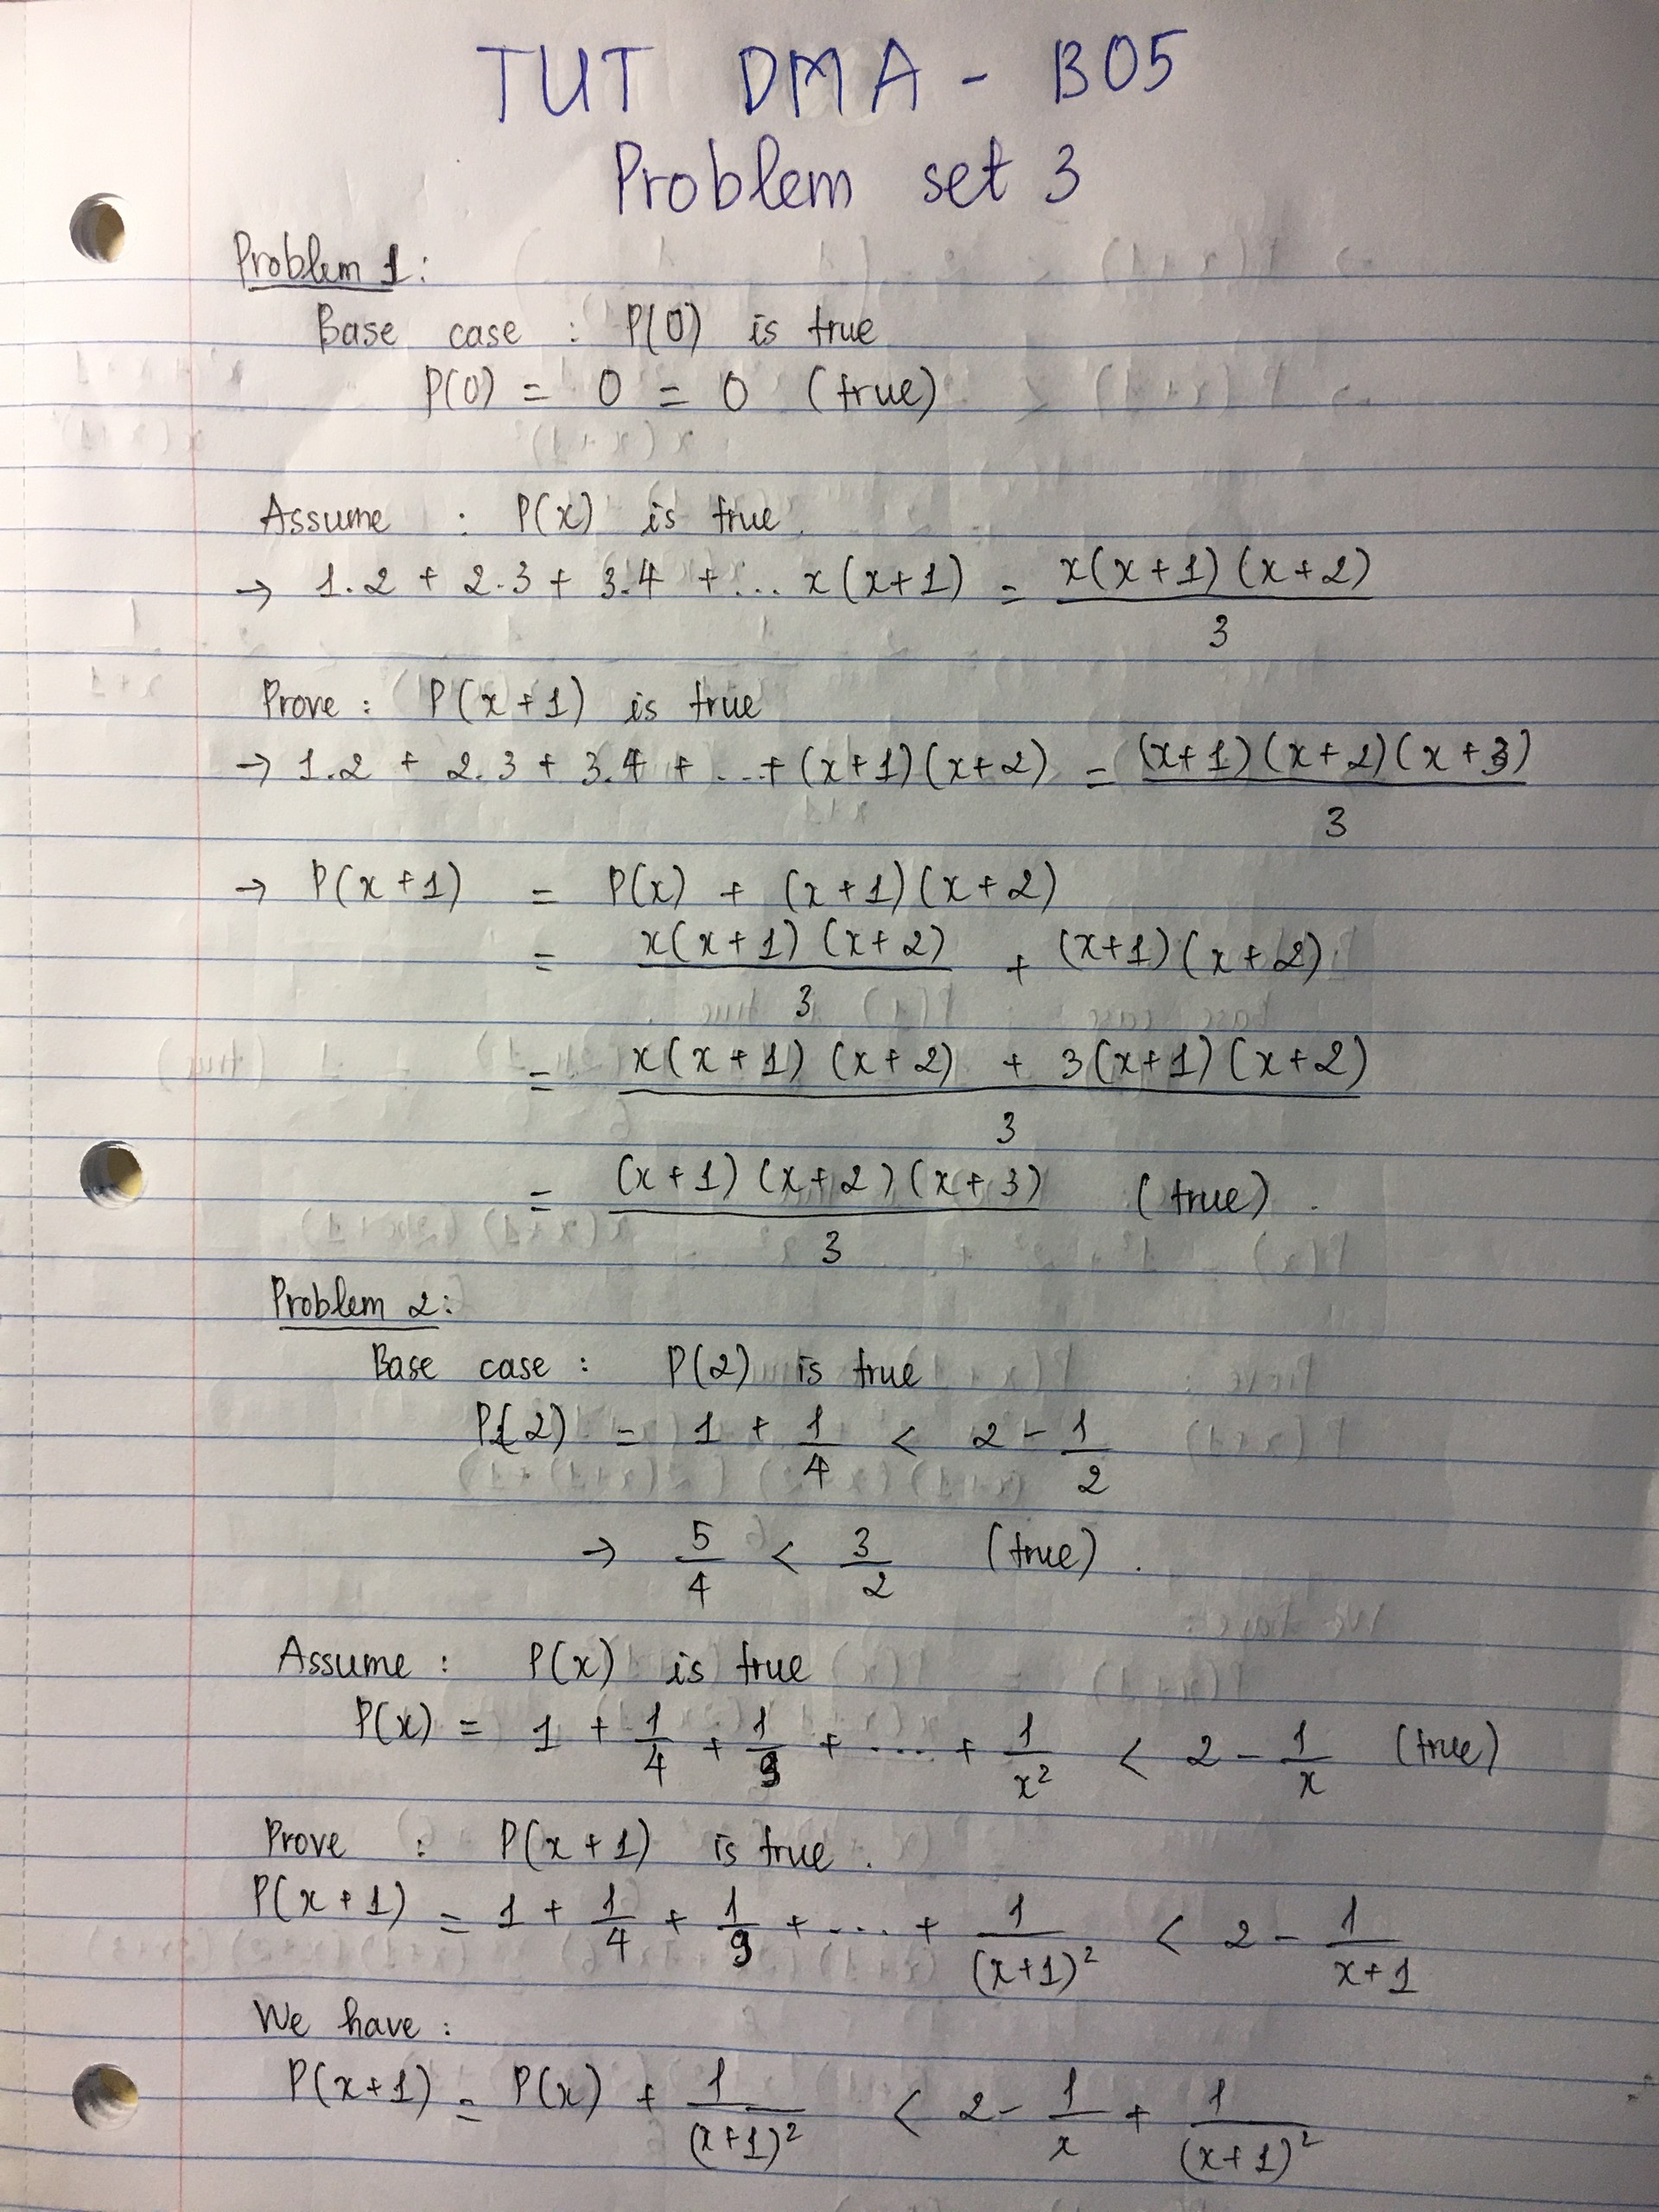 TUT DMA - B05
Problem set 3
Problem 1:
Base case : P(0) is true
P(0) = 0 = 0 (true)
Assume : P(x) is true.
→ 1.2 + 2.3 + 3.4 + ... x(x+1) = x(x+1)(x+2) / 3
Prove : P(x+1) is true
→ 1.2 + 2.3 + 3.4 + ... + (x+1)(x+2) = (x+1)(x+2)(x+3) / 3
→ P(x+1) = P(x) + (x+1)(x+2)
= x(x+1)(x+2) / 3 + (x+1)(x+2)
= x(x+1)(x+2) + 3(x+1)(x+2) / 3
= (x+1)(x+2)(x+3) / 3 (true).
Problem 2:
Base case : P(2) is true
P(2) = 1 + 1/4 < 2 - 1/2
→ 5/4 < 3/2 (true).
Assume : P(x) is true
P(x) = 1 + 1/4 + 1/9 + .... + 1/x² < 2 - 1/x (true)
Prove : P(x+1) is true.
P(x+1) = 1 + 1/4 + 1/9 + .... + 1/(x+1)² < 2 - 1/x+1
We have :
P(x+1) = P(x) + 1/(x+1)² < 2 - 1/x + 1/(x+1)²